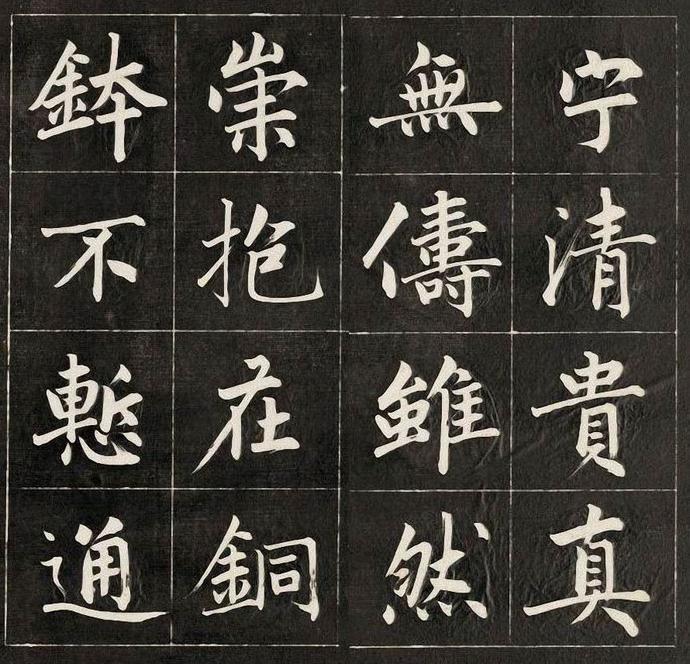 宁清貴真
無儔雖然
崇抱在銅
鉢不慙通